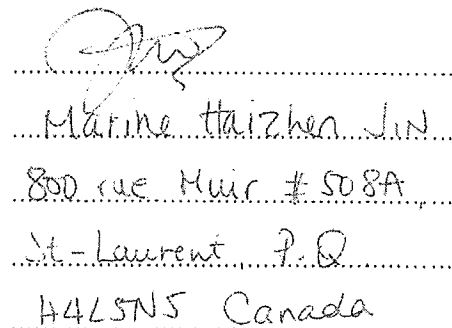 Marine Haizhen JIN
800 rue Muir # 508A,
St-Laurent, P.Q.
H4L5N5 Canada